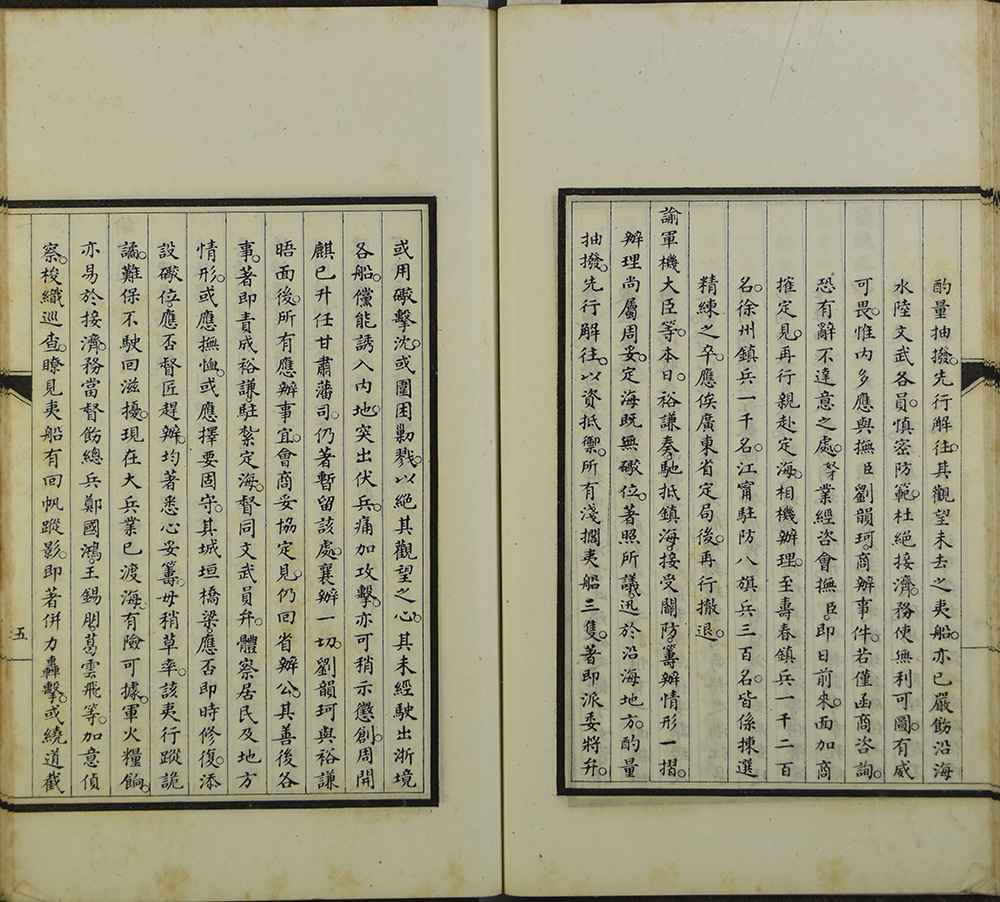 酌量抽撥。先行解往。其觀望未去之夷船。亦已嚴飭沿海
水陸文武各員。慎密防範。杜絕接濟。務使無利可圖。有威
可畏。惟內多應與撫臣劉韻珂。商辦事件。若僅函商咨詢。
恐有辭不達意之處。業經咨會撫臣。即日前來。面加商
搉定見。再行親赴定海。相機辦理。至壽春鎮兵一千二百
名。徐州鎮兵一千名。江甯駐防八旗兵三百名。皆係揀選
精練之卒。應俟廣東省定局後。再行撤退。
諭軍機大臣等。本日。裕謙奏。馳抵鎮海。接受關防。籌辦情形一摺。
辦理尚屬周妥。定海既無礮位。著照所議。迅於沿海地方。酌量
抽撥。先行解往。以資抵禦。所有淺擱夷船三隻。著即派委將弁。
或用礮擊沈。或圍困勦戮。以絕其觀望之心。其未經駛出浙境
各船。儻能誘入內地。突出伏兵。痛加攻擊。亦可稍示懲創。周開
麒已升任甘肅藩司。仍著暫留該處。襄辦一切。劉韻珂與裕謙
晤面後。所有應辦事宜。會商妥協定見。仍回省辦公。其善後各
事。著即責成裕謙。駐紮定海。督同文武員弁。體察居民及地方
情形。或應撫恤。或應擇要固守。其城垣橋梁。應否即時修復。添
設礮位。應否督匠趕辦。均著悉心妥籌。毋稍草率。該夷行蹤詭
譎。難保不駛回滋擾。現在大兵業已渡海。有險可據。軍火糧餉。
亦易於接濟。務當督飭總兵鄭國鴻。王錫朋。葛雲飛等。加意偵
察。梭織巡查。瞭見夷船有回帆蹤影。即著併力轟擊。或繞道截
五